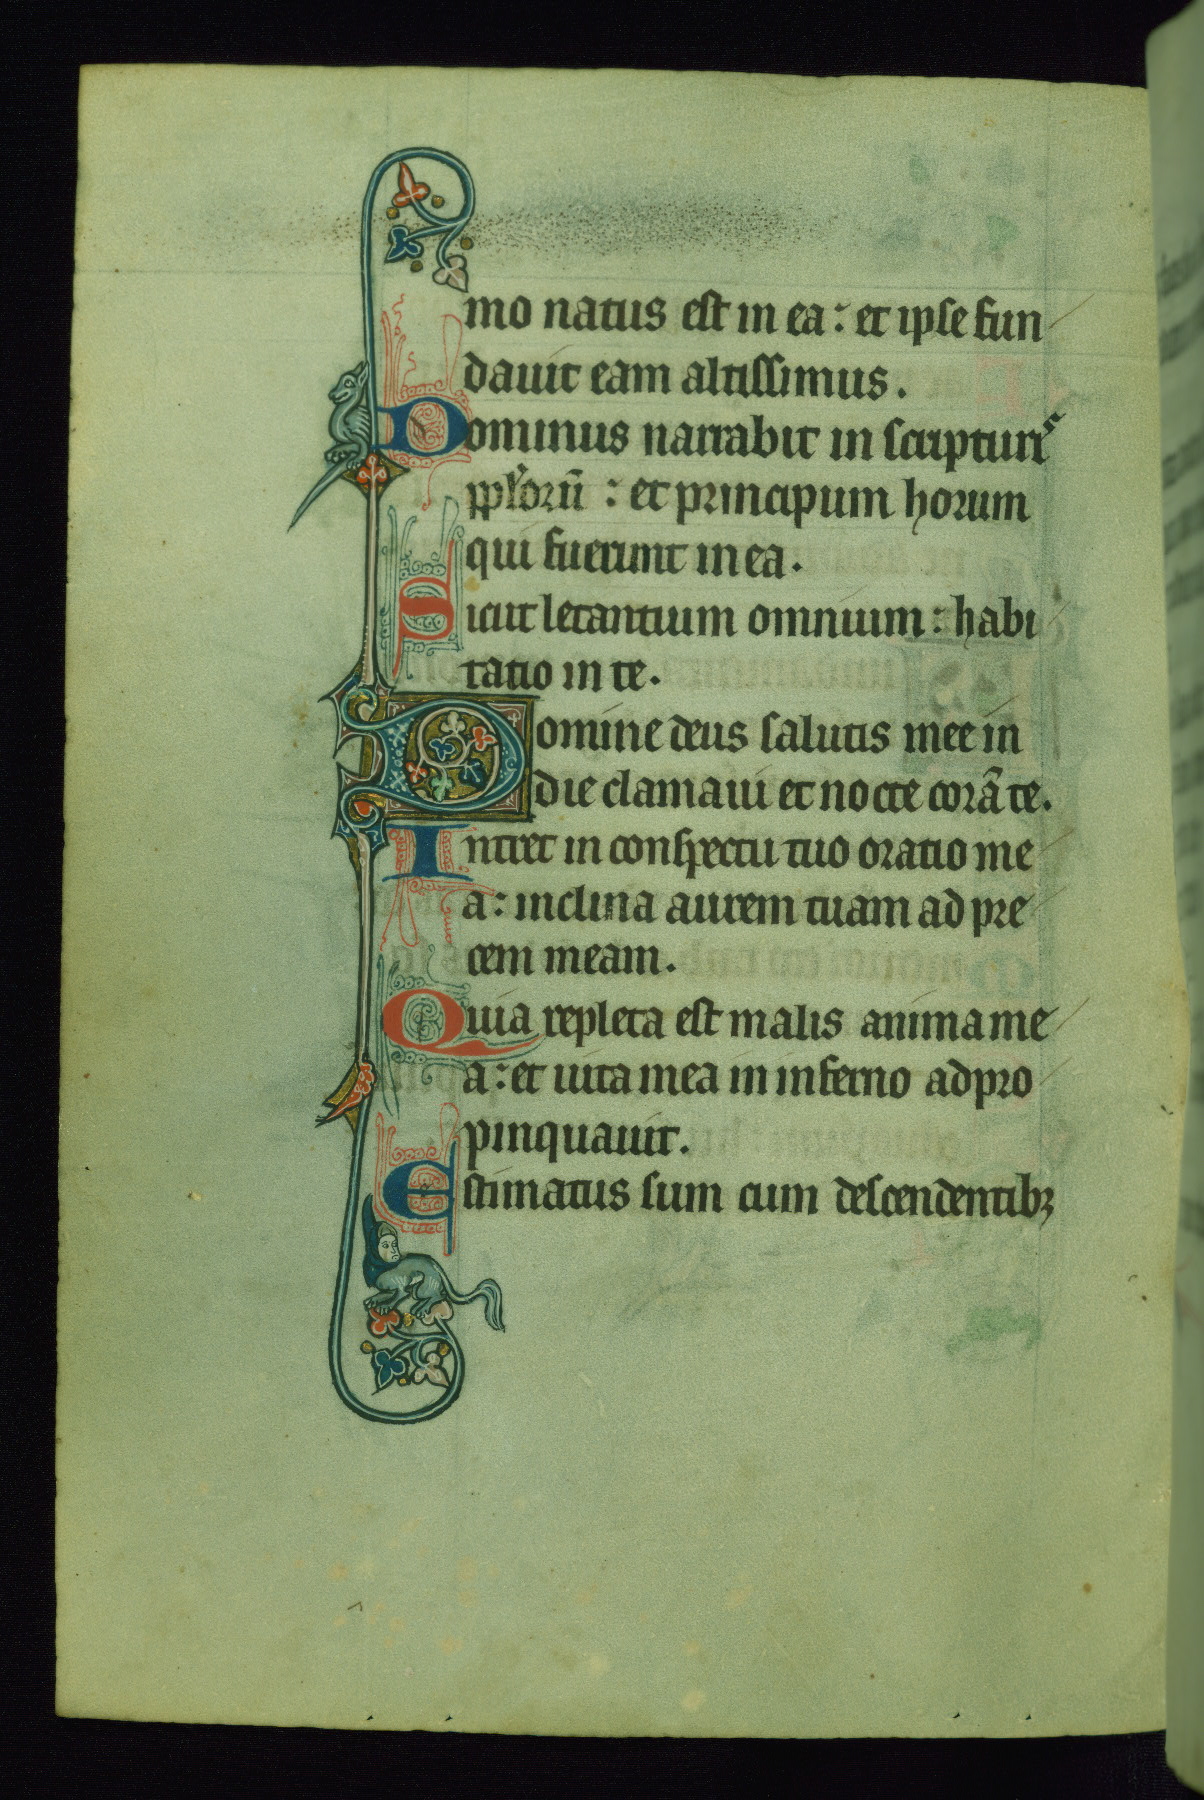 mo natus est in ea : et ipse fun
dauit eam altissimus .
Dominus narrabit in scripturis
pploru̅ : et principum horum
qui fuerunt in ea .
Sicut letantium omnium : habi
tatio in te .
Domine deus salutis mee in
die clamaui et nocte cora̅ te .
Intret in conspectu tuo oratio me
a : inclina aurem tuam ad pre
cem meam .
Quia repleta est malis anima me
a : et uita mea in inferno adpro
pinquauit .
Estimatus sum cum descendentibꝫ